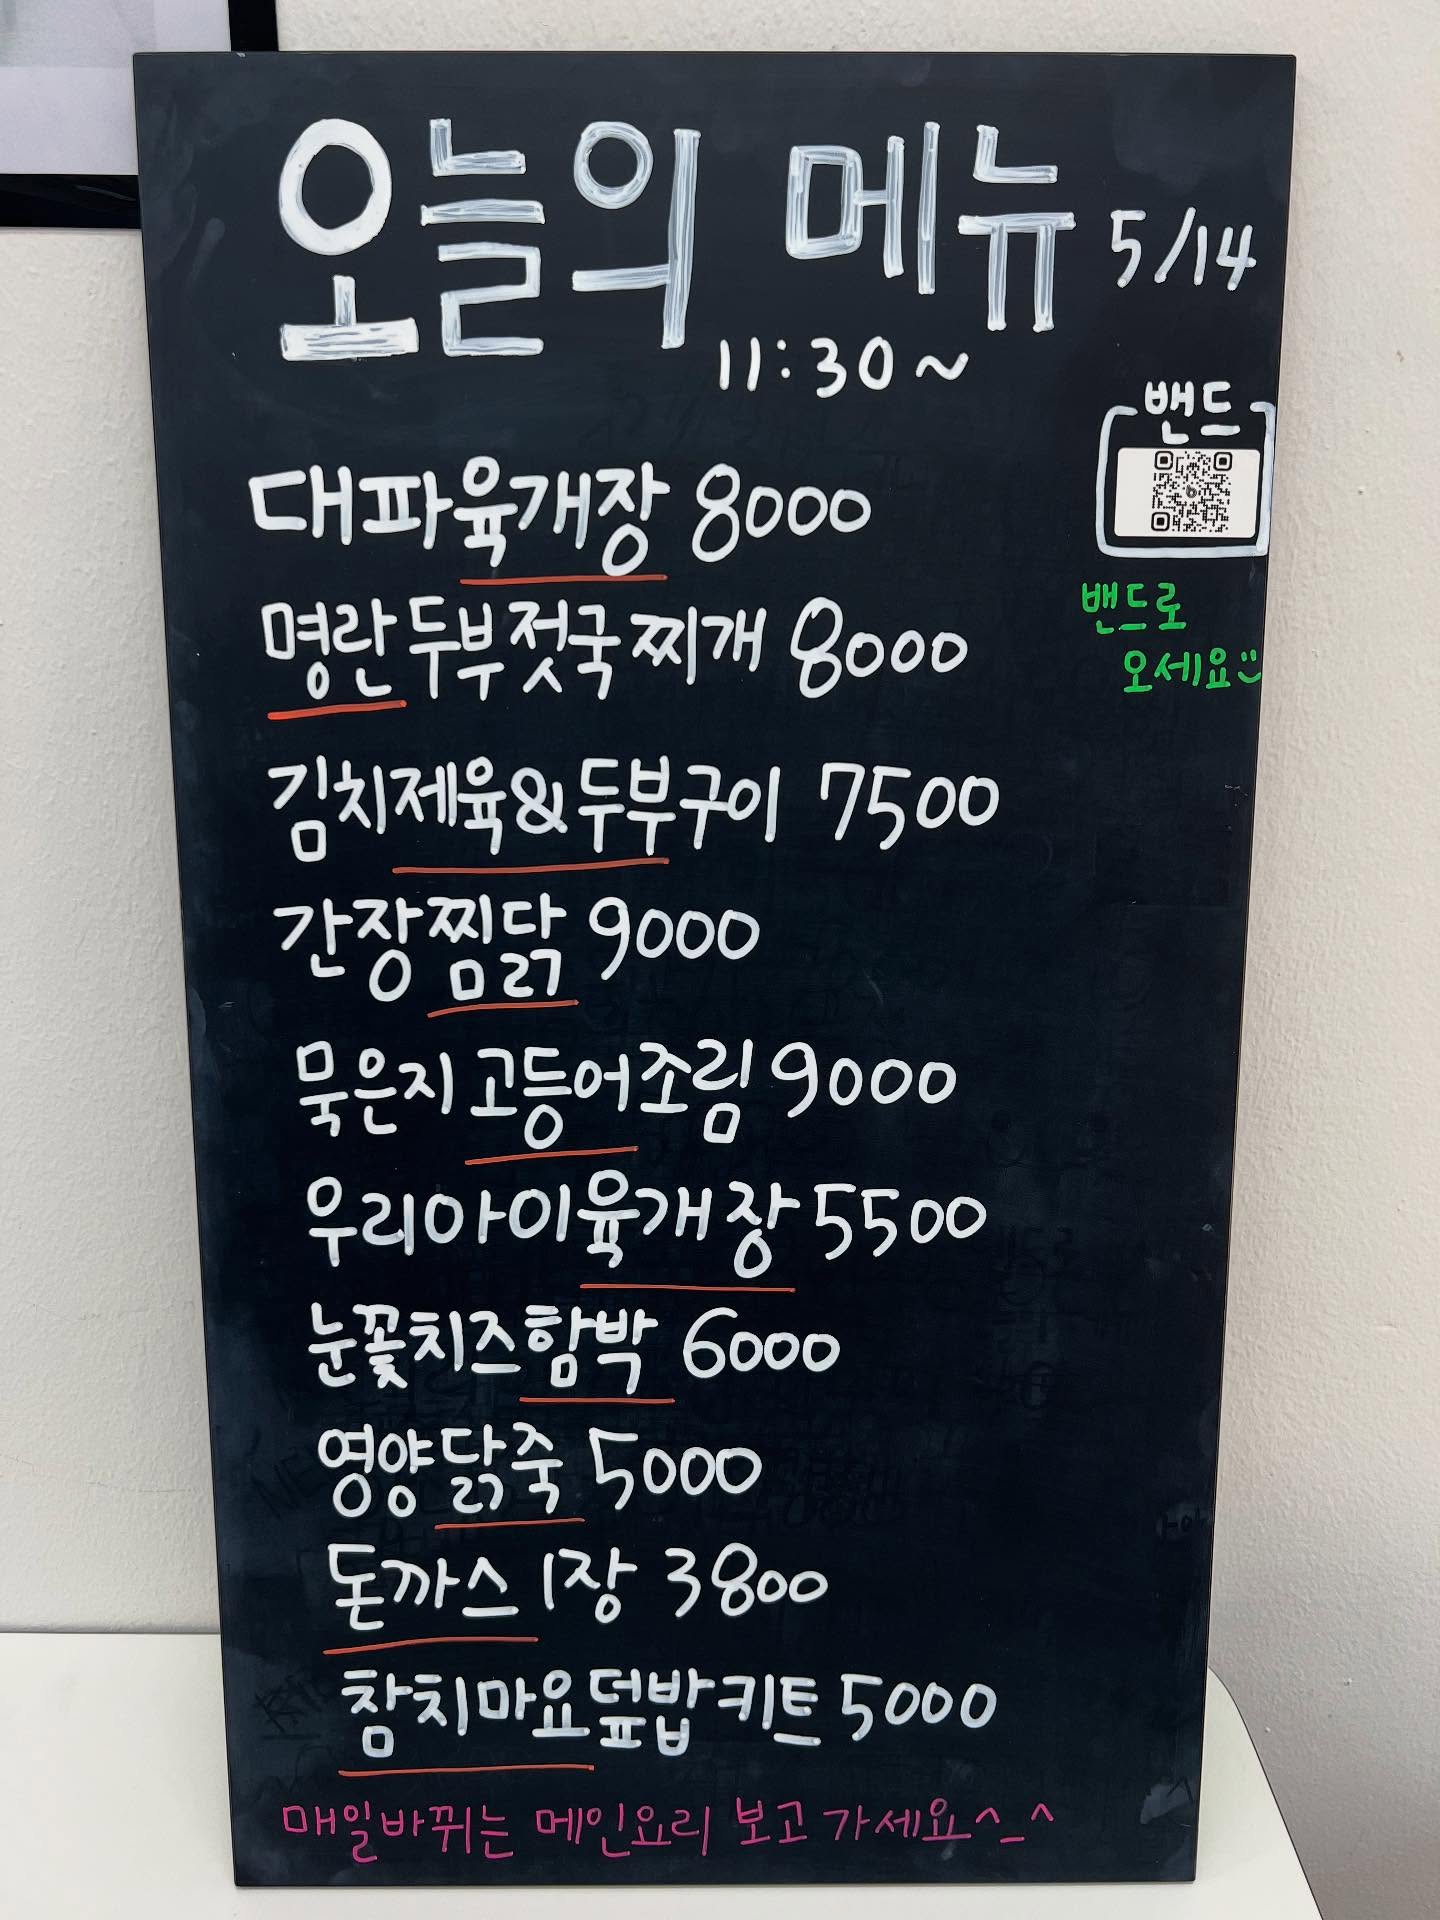 오늘의 메뉴 5/14
11:30~
밴드
대파육개장 8000
명란두부젓국찌개 8000
밴드로
오세요
김치제육&두부구이 7500
간장찜닭 9000
묵은지고등어조림 9000
우리아이육개장 5500
눈꽃치즈함박 6000
영양닭죽 5000
돈까스 1장 3800
참치마요덮밥키트 5000
매일바뀌는 메인요리 보고 가세요^_^